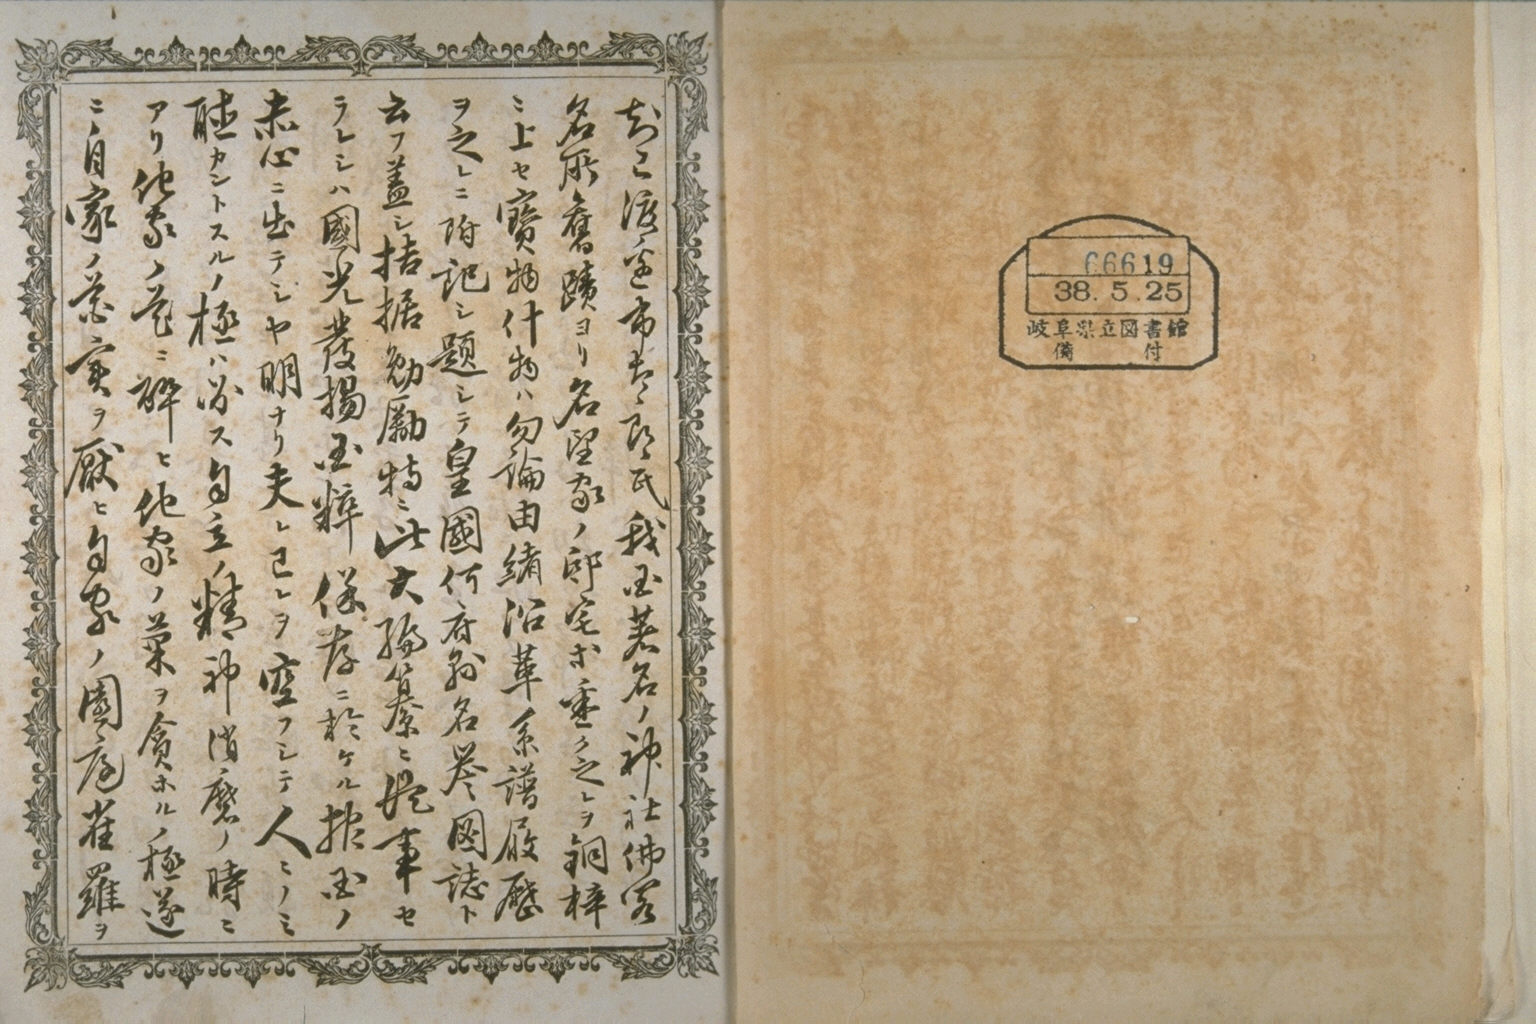 66619
38.5.25
岐阜県立図書館
備付
知己渡邊市太郎氏我国著名ノ神社佛閣
名所舊蹟ヨリ名望家ノ邸宅ホ悉ク之レヲ銅梓
ニ上セ寶物什物ハ勿論由緒沿革系譜履歴
ヲ之レニ附記シ題シテ皇國何府縣名誉図誌ト
云フ蓋シ拮据勉勵特ニ此大編纂ニ從事セ
ラレシハ國光發揚国粹保存ニ於ケル報国ノ
赤心ニ出テシヤ明ナリ夫レ己レヲ空フシテ人ニノミ
聴カントスルノ極ハ必ス自立ノ精神消磨ノ時ニ
アリ他家ノ花ニ酔ヒ他家ノ菓ヲ貪ホルノ極遂
ニ自家ノ花実ヲ厭ヒ自家ノ園庭雀羅ヲ